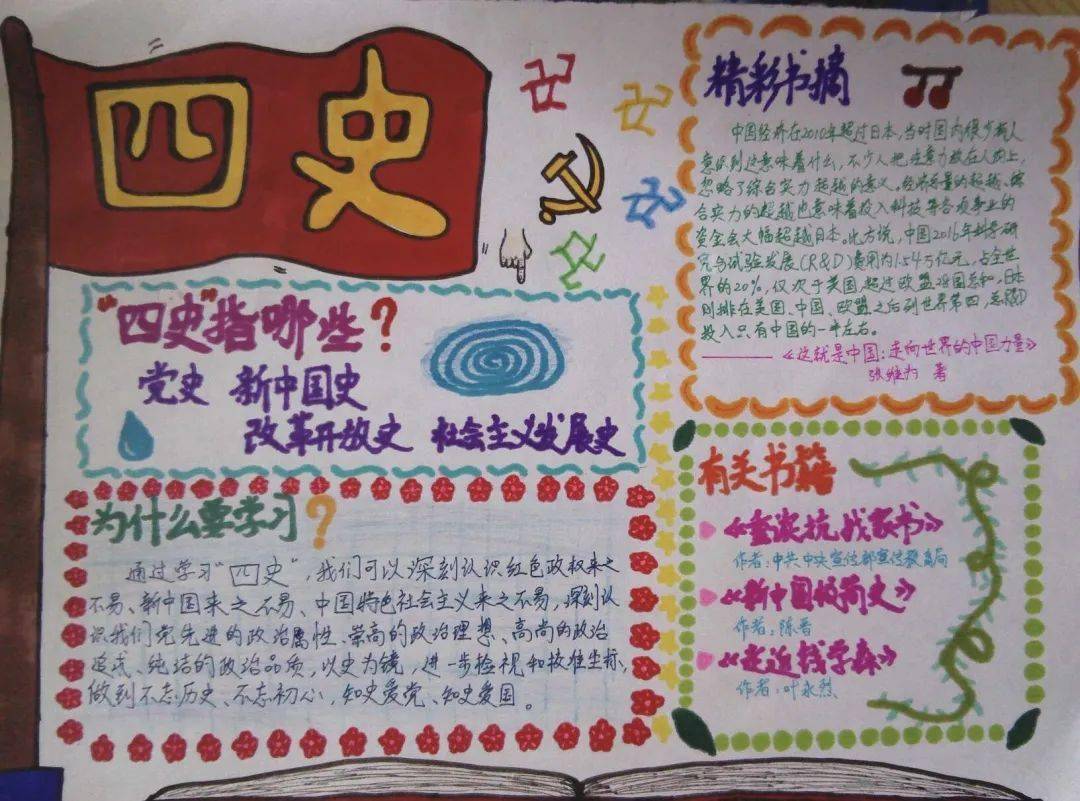 四史
“四史”指哪些？
党史 新中国史
改革开放史 社会主义发展史
为什么要学习？
通过学习“四史”，我们可以深刻认识红色政权来之
不易、新中国来之不易、中国特色社会主义来之不易，深刻认
识我们党先进的政治属性、崇高的政治理想、高尚的政治
追求、纯洁的政治品质，以史为镜，进一步检视和校准坐标，
做到不忘历史、不忘初心，知史爱党、知史爱国。
精彩书摘
中国经济在2010年超过日本，当时国内很少有人
意识到这意味着什么，不少人把注意力放在人均上，
忽略了综合实力超越的意义。经济总量的超越、综
合实力的超越也意味着投入科技等各项事业的
资金会大幅超越日本。比方说，中国2016年科学研
究与试验发展(R&D)费用为1.54万亿元，占全世
界的20%，仅次于美国，超过欧盟诸国总和，日本
则排在美国、中国、欧盟之后列世界第四，总额
投入只有中国的一半左右。
《这就是中国：走向世界的中国力量》
张维为 著
有关书籍
《重读抗战家书》
作者：中共中央宣传部宣传教育局
《新中国极简史》
作者：陈晋
《走近钱学森》
作者：叶永烈